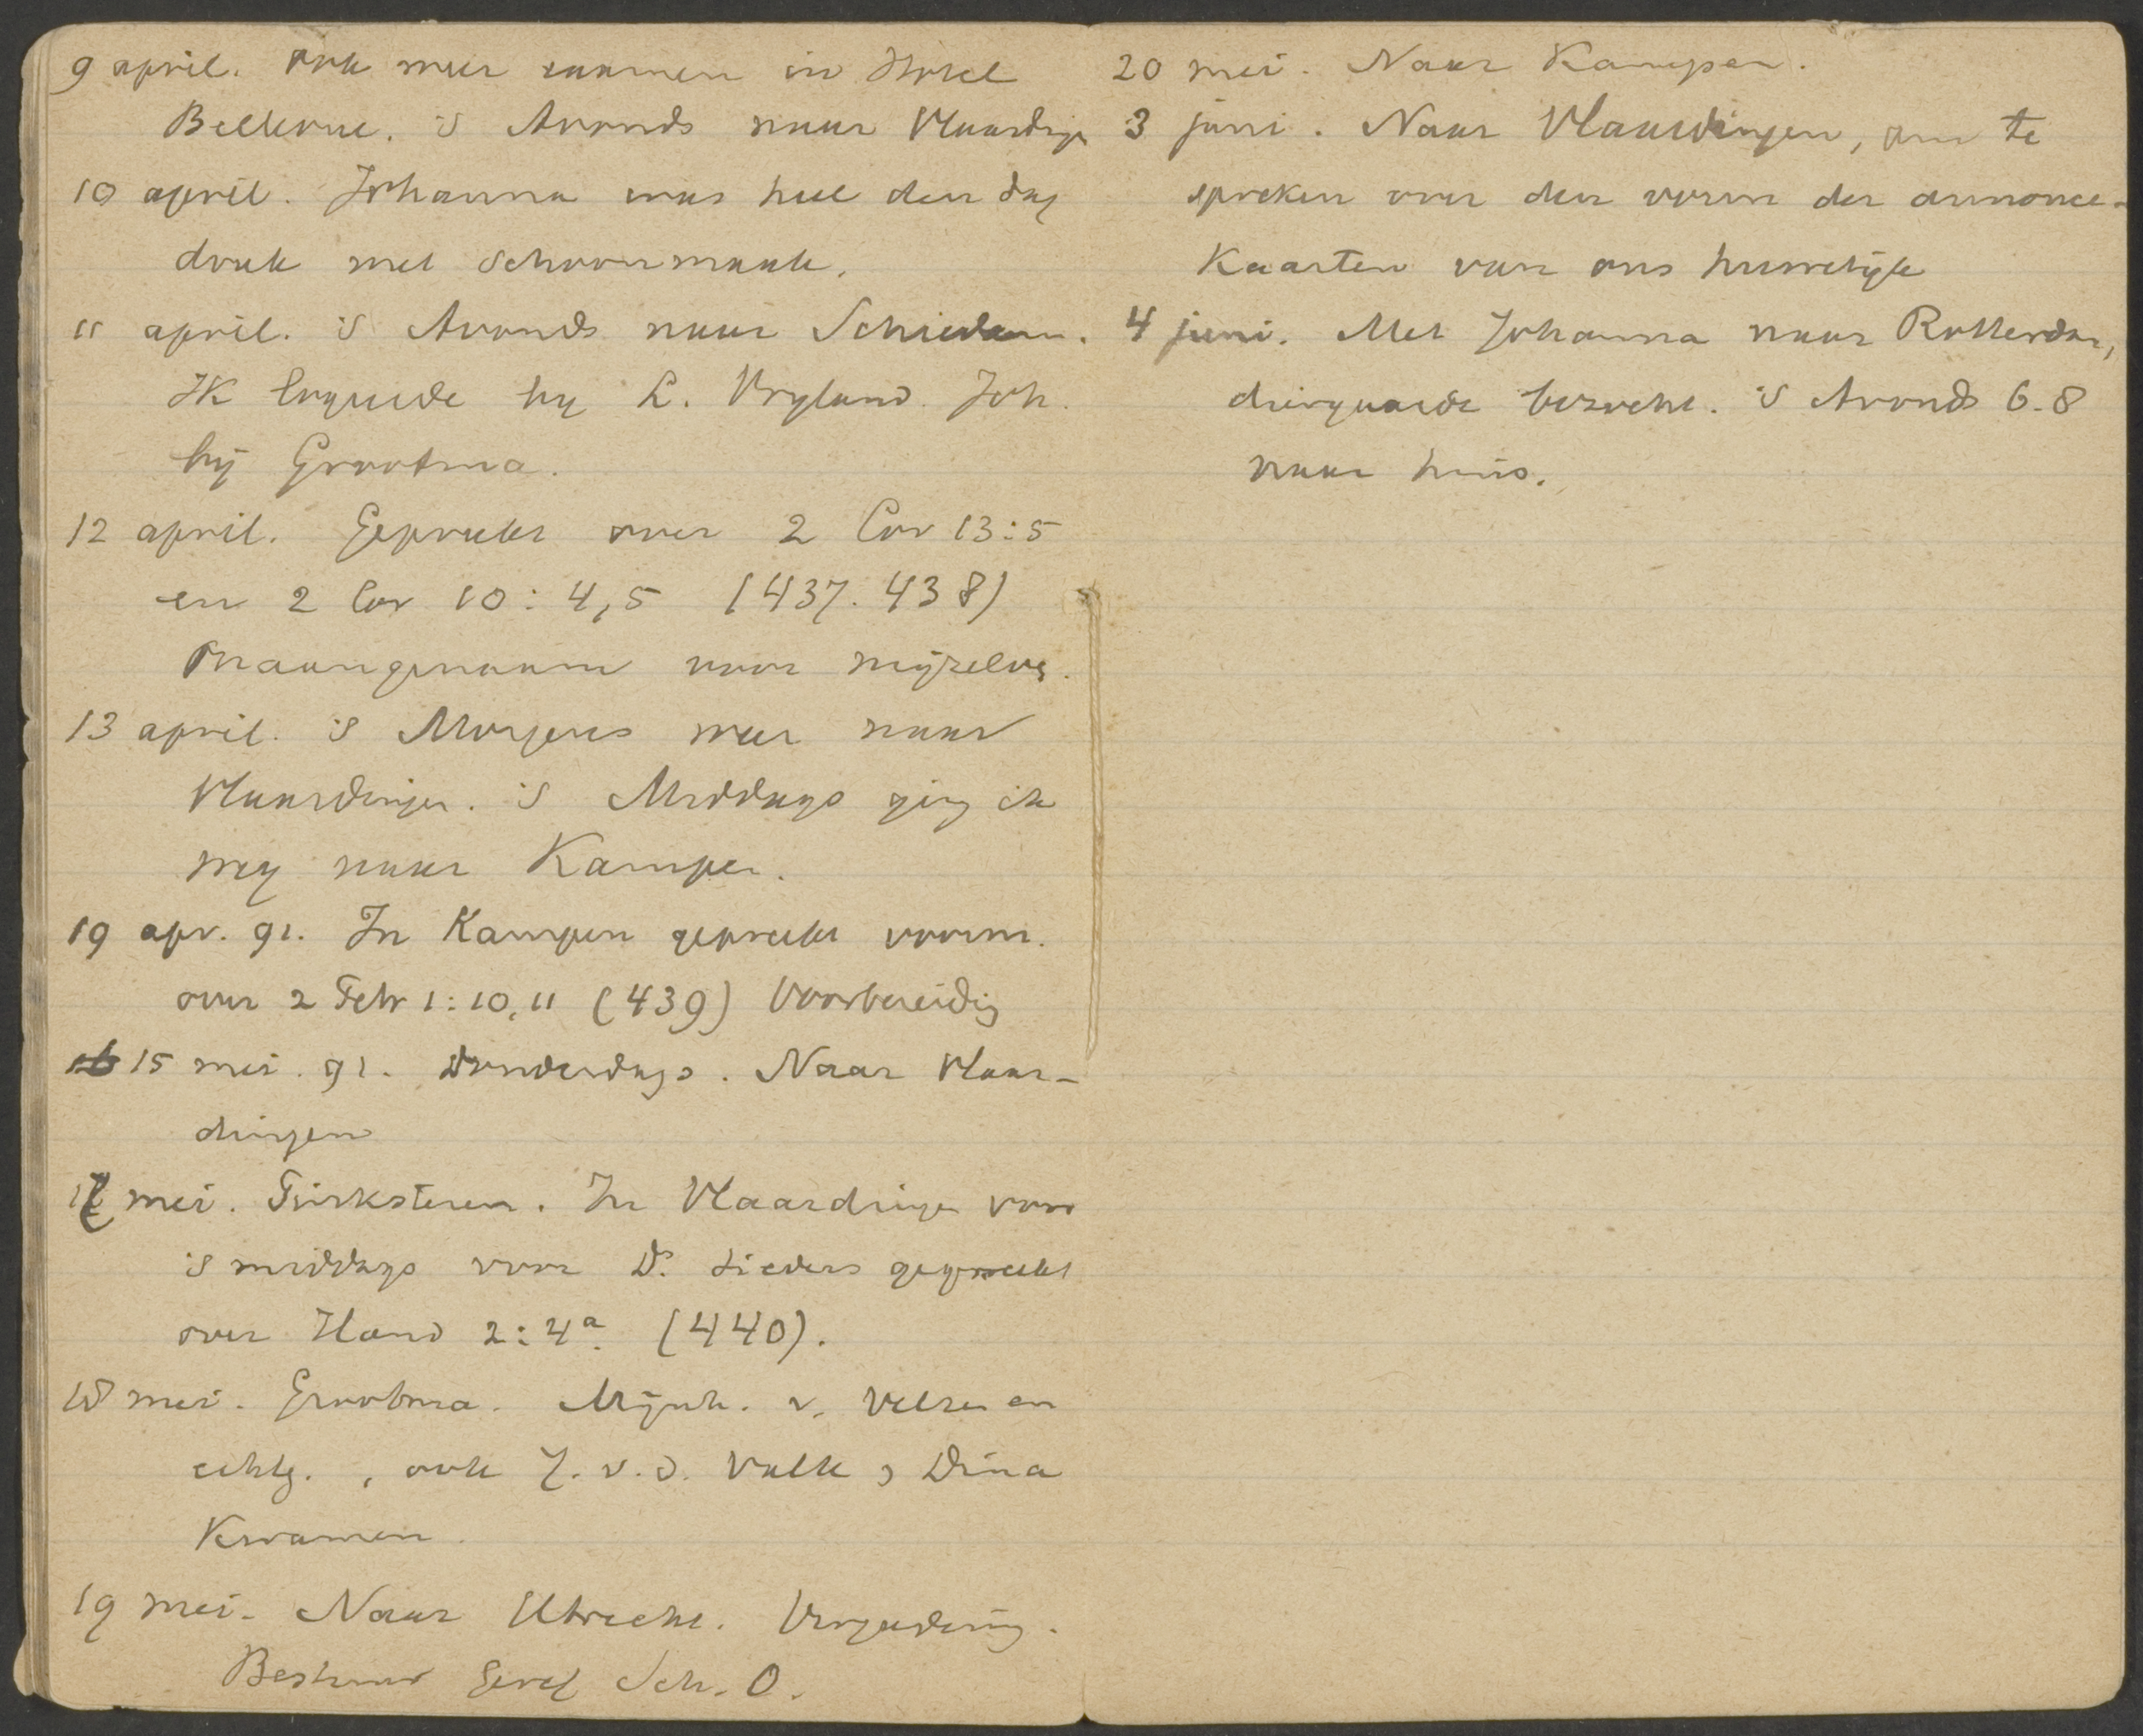 9 april. Ook weer samen in Hotel
Bellevue. 's Avonds naar Vlaarding
10 april. Johanna was heel den dag
druk met schoonmaak.
11 april. 's Avonds naar Schiedam.
Ik logeerde by L. Vryland. Joh.
bij Grootma.
12 april. Gepreekt over 2 Cor 13:5
en 2 Cor 10: 4,5 (437. 438)
Onaangenaam voor mijzelve.
13 april. 's Morgens weer naar
Vlaardingen. 's Middags ging ik
weg naar Kampen.
19 apr. 91. In Kampen gepreekt voorm.
over 2 Petr 1:10,11 (439) Voorbereidig
15 mei. 91. Donderdags. Naar Vlaar-
dingen
17 mei. Pinksteren. In Vlaardingen voor
's middags voor Ds. Sieders gepreekt
over Hand 2:4a. (440).
18 mei. Grootma. Mijnh. v. Velzen en
echtg., ook J. v. d. Valk, Dina
Kwamen.
19 mei. Naar Utrecht. Vergadering.
Bestuur Geref Sch. O.
20 mei. Naar Kampen.
3 juni. Naar Vlaardingen, om te
spreken over den vorm der annonce-
Kaarten van ons huwelijk
4 juni. Met Johanna naar Rotterdam,
diergaarde bezocht. 's Avonds 6-8
naar huis.